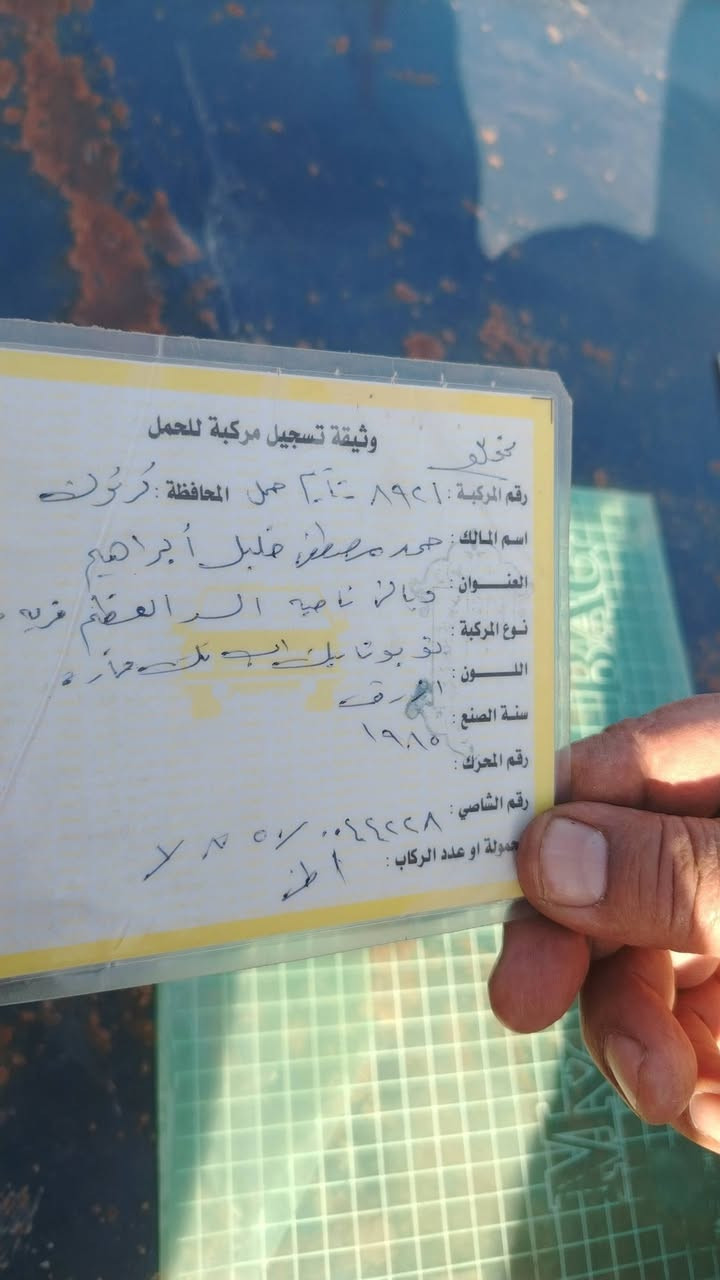 وثيقة تسجيل مركبة للحمل
رقم المركبة : ٨٩٢١ حمل المحافظة : كركوك
اسم المالك : حمد مصطفى خليل أبراهيم
العنـــوان : ديالى ناحية السد العظيم قريه
نوع المركبة : تويوتا بيك اب
اللـــون : ازرق
سنة الصنع : ١٩٨٥
رقم المحرك :
رقم الشاصي : ٠٠٤٤٢٢٨
حمولة او عدد الركاب : ١ طن